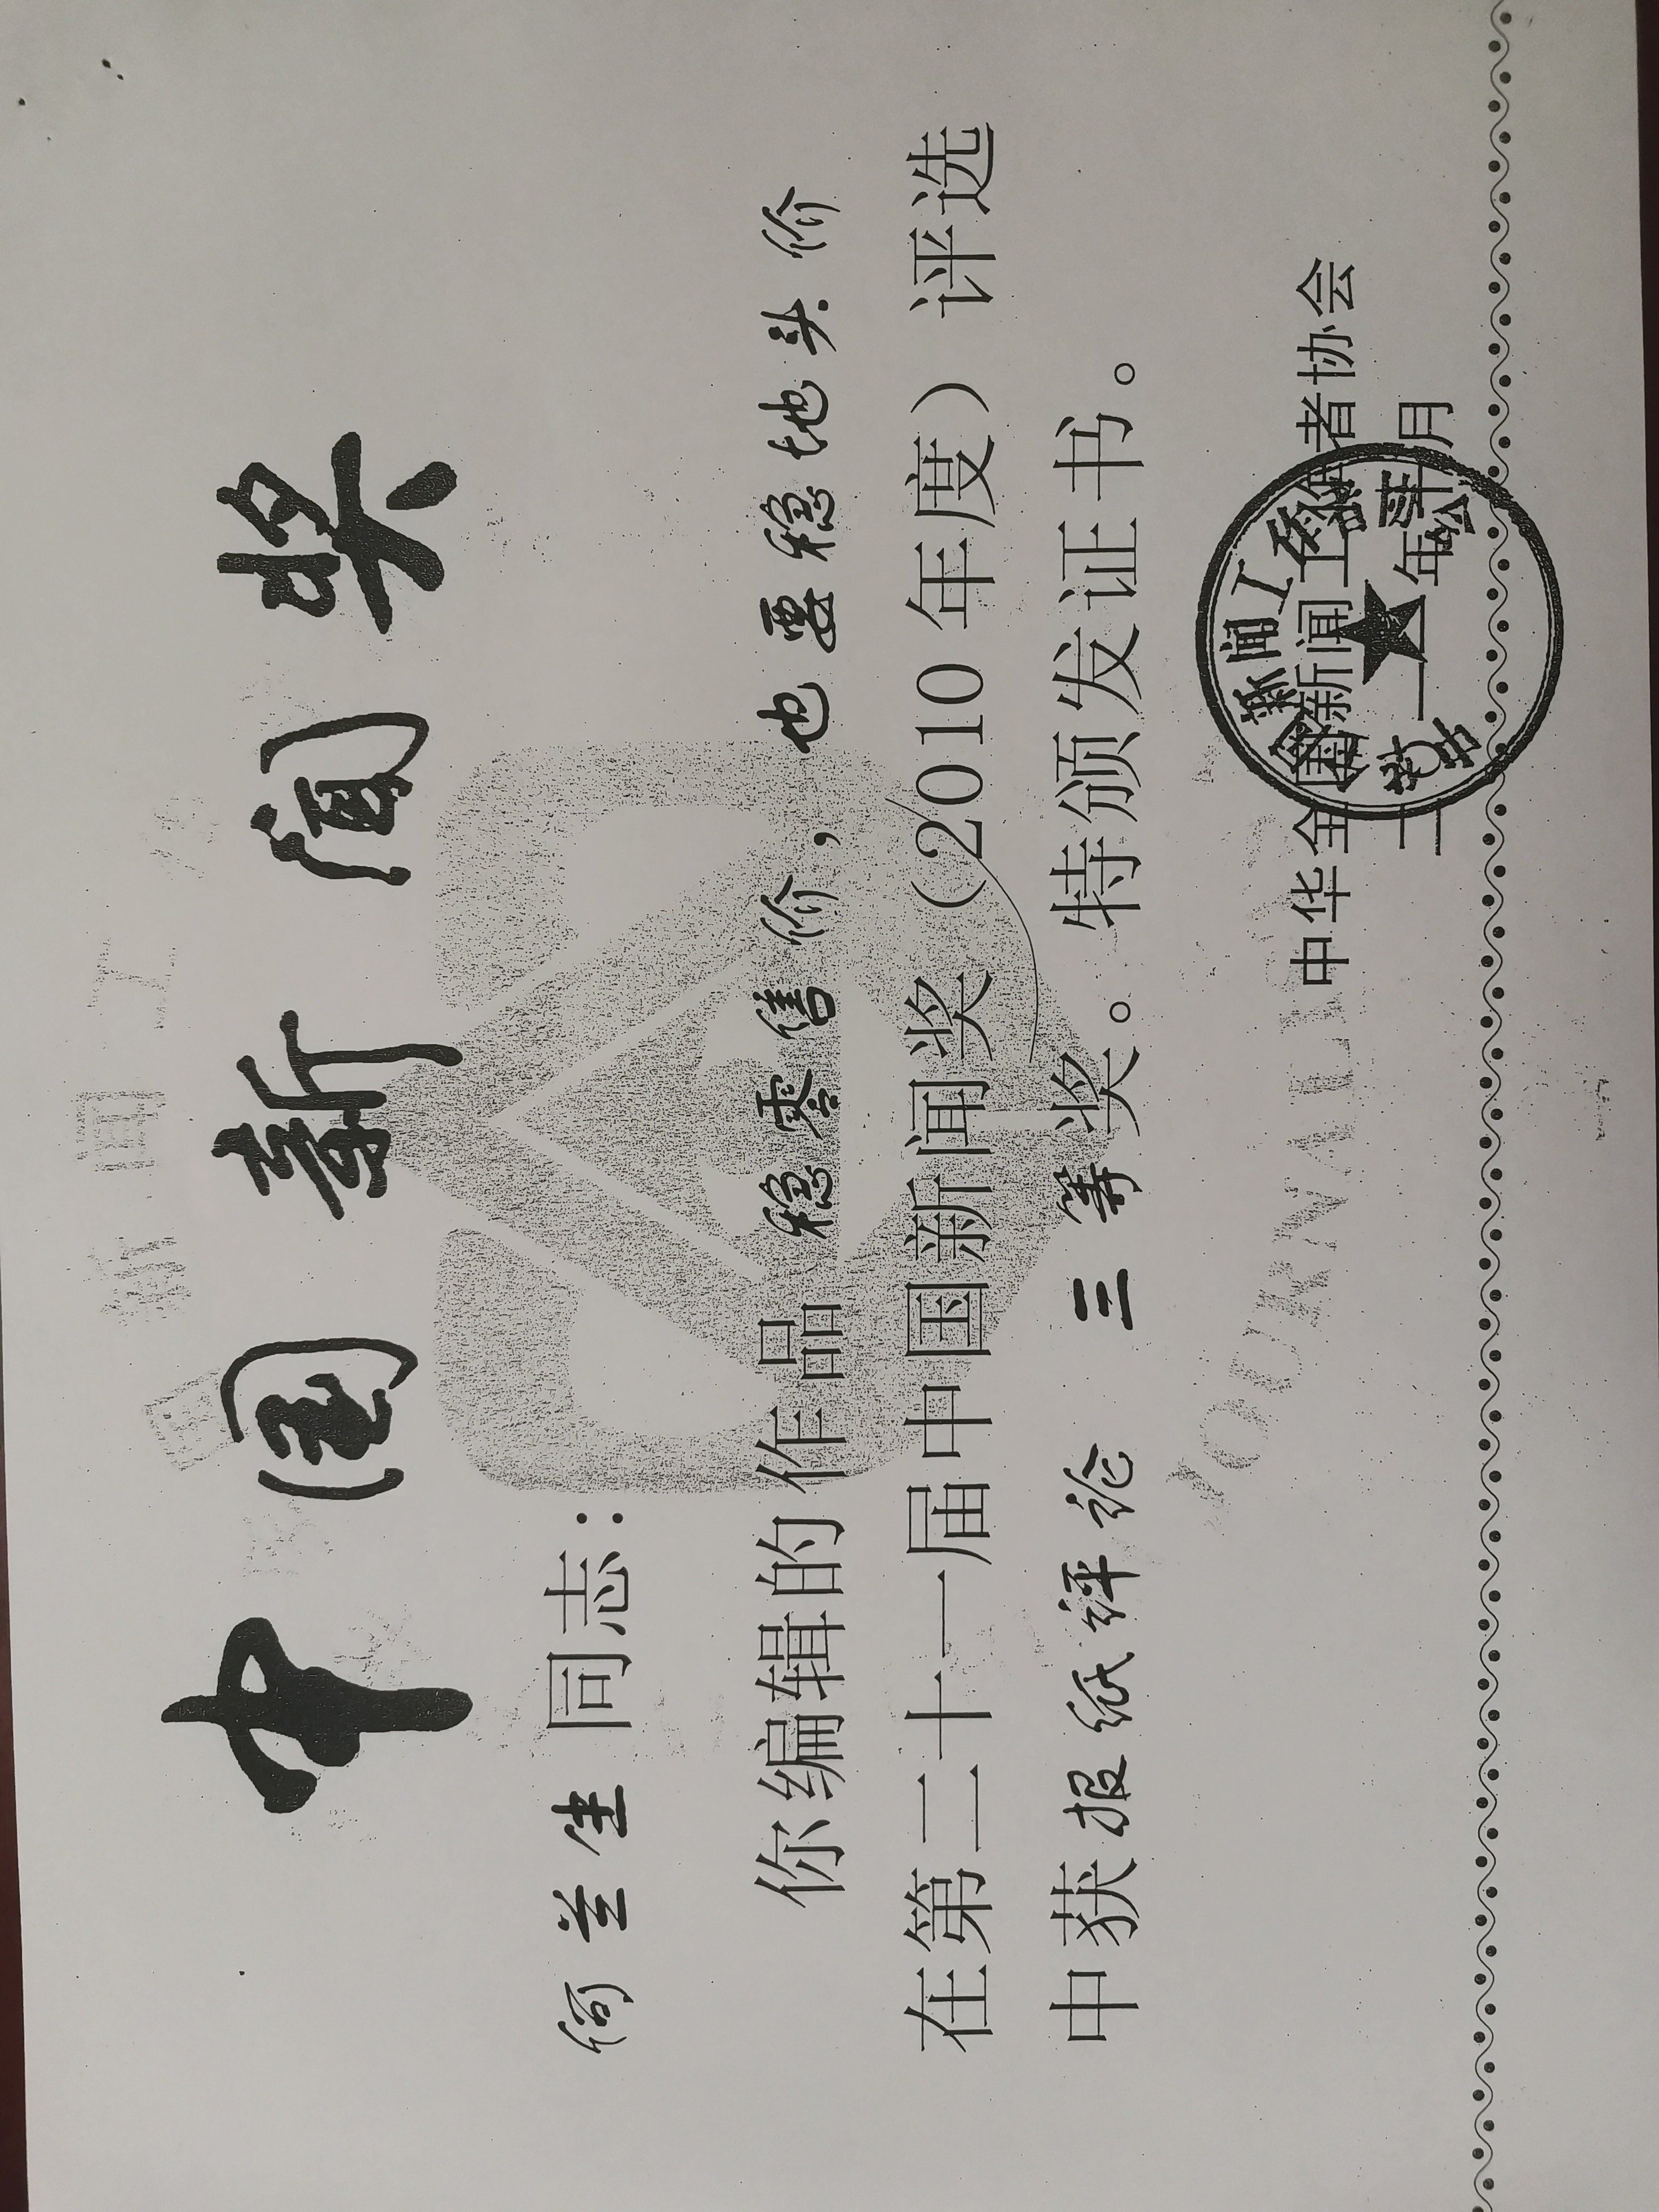 中国新闻奖
何兰生同志：
你编辑的作品 稳零售价，也要稳地头价
在第二十一届中国新闻奖（2010年度）评选
中获报纸评论 三等奖。特颁发证书。
中华全国新闻工作者协会
二〇一一年十月
新闻工
JOURNALIS